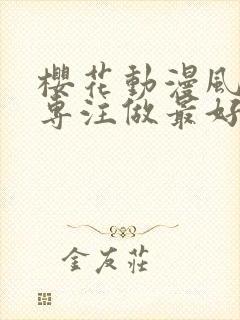 櫻花動漫風
專注做最好
金友莊